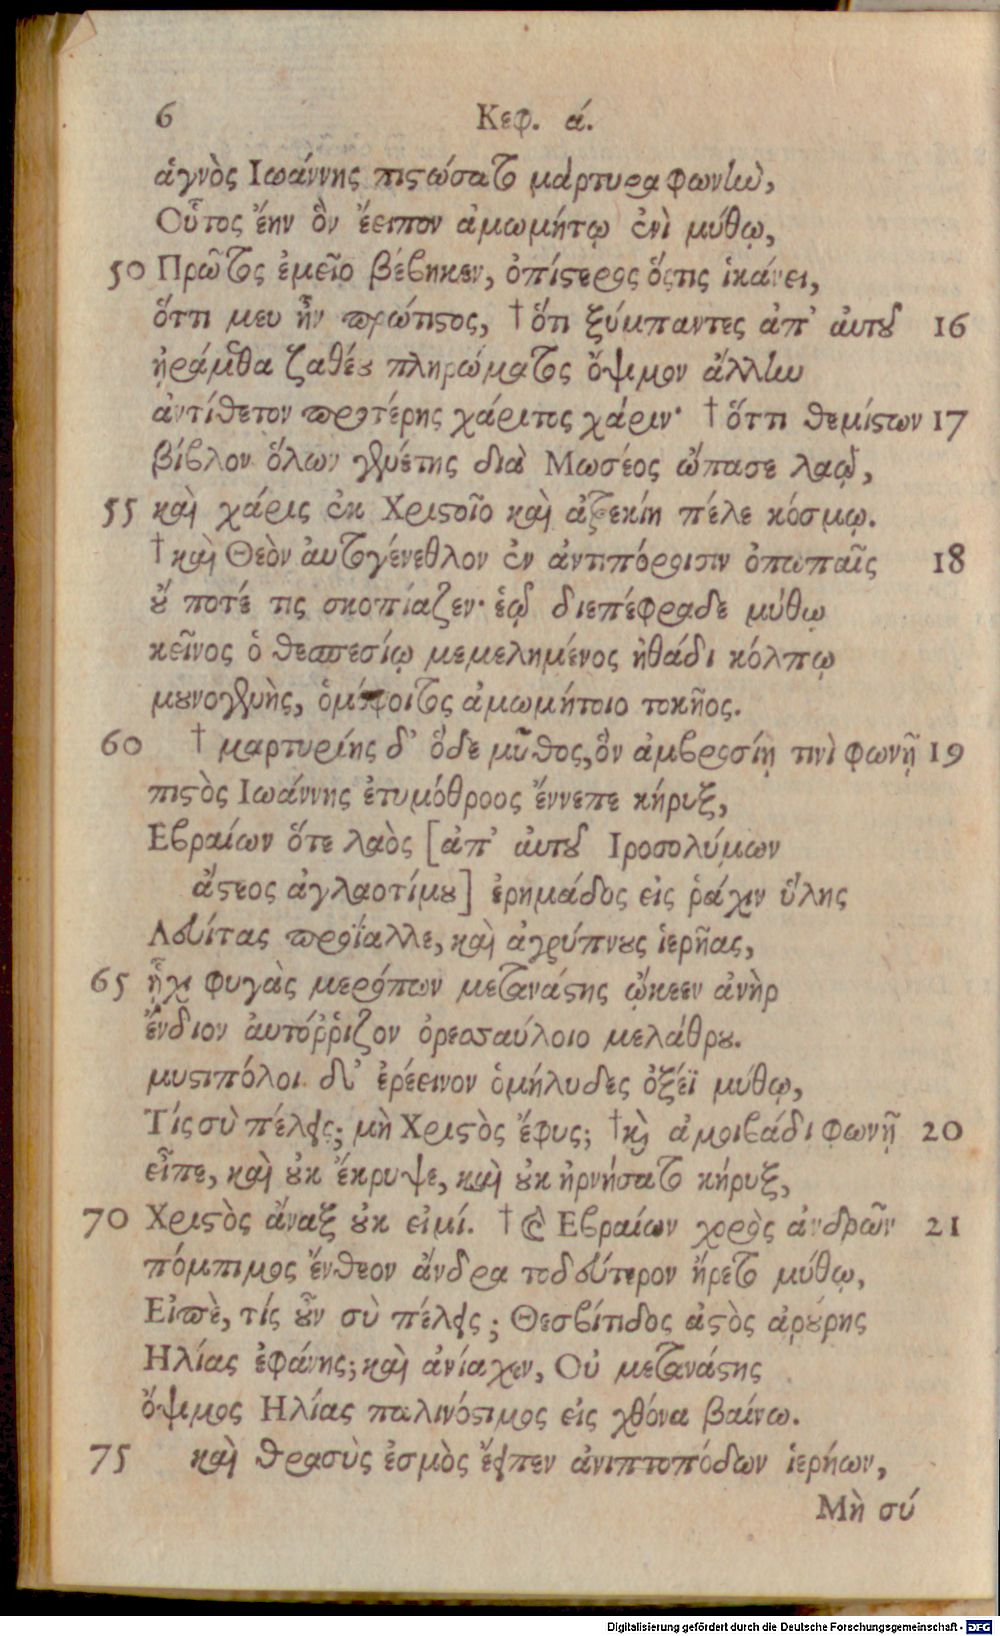 6 Κεφ. ά.
ἁγνὸς Ιωάννης πιστώσατο μάρτυρα φωνὴν,
Οὗτος ἔην ὃν ἔειπον ἀμωμήτῳ ἐνὶ μύθῳ,
50 Πρῶτος ἐμεῖο βέβηκεν, ὀπίστερος ὅστις ἱκάνει,
ὅττι μευ ἦν πρώτιστος, † ὅτι ξύμπαντες ἀπ' αὐτοῦ 16
ᾐράμεθα ζαθέου πληρώματος ὄψιμον ἄλλην
ἀντίθετον προτέρης χάριτος χάριν· † ὅττι θεμίστων 17
βίβλον ὅλων γευέτης διὰ Μωσέος ὤπασε λαῷ,
55 καὶ χάρις ἐκ Χριστοῖο καὶ ἀτρεκίη πέλε κόσμῳ.
† καὶ Θεὸν αὐτογένεθλον ἐν ἀντιπόροισιν ὀπωπαῖς 18
οὔ ποτέ τις σκοπίαζεν· ἑῷ διεπέφραδε μύθῳ
κεῖνος ὁ θεσπεσίῳ μεμελημένος ἠθάδι κόλπῳ
μουνογενὴς, ὁμόφοιτος ἀμωμήτοιο τοκῆος.
60 † μαρτυρίης δ' ὅδε μῦθος, ὃν ἀμβροσίῃ τινὶ φωνῇ 19
πιστὸς Ιωάννης ἐτυμόθροος ἔννεπε κήρυξ,
Εβραίων ὅτε λαὸς [ἀπ' αὐτοῦ Ιροσολύμων
ἄστεος ἀγλαοτίμου] ἐρημάδος εἰς ῥάχιν ὕλης
Λευίτας προΐαλλε, καὶ ἀγρύπνους ἱερῆας,
65 ᾗχι φυγὰς μερόπων μετανάστης ᾤκεεν ἀνὴρ
ἔνδιον αὐτόῤῥιζον ὀρεσσαύλοιο μελάθρου.
μυστιπόλοι δ' ἐρέεινον ὁμήλυδες ὀξέϊ μύθῳ,
Τίς σὺ πέλεις; μὴ Χριστὸς ἔφυς; † καὶ ἀμοιβάδι φωνῇ 20
εἶπε, καὶ οὐκ ἔκρυψε, καὶ οὐκ ἠρνήσατο κήρυξ,
70 Χριστὸς ἄναξ οὐκ εἰμί. † ὁ δ' Εβραίων χορὸς ἀνδρῶν 21
πόμπιμος ἔνθεον ἄνδρα τοδεύτερον ἤρετο μύθῳ,
Εἰπὲ, τίς οὖν σὺ πέλεις; Θεσβίτιδος ἀστὸς ἀρούρης
Ηλίας ἐφάνης; καὶ ἀνίαχεν, Οὐ μετανάστης
ὄψιμος Ηλίας παλινόστιμος εἰς χθόνα βαίνω.
75 καὶ θρασὺς ἑσμὸς ἔειπεν ἀνιπτοπόδων ἱερήων,
Μὴ σύ
Digitalisierung gefördert durch die Deutsche Forschungsgemeinschaft - DFG